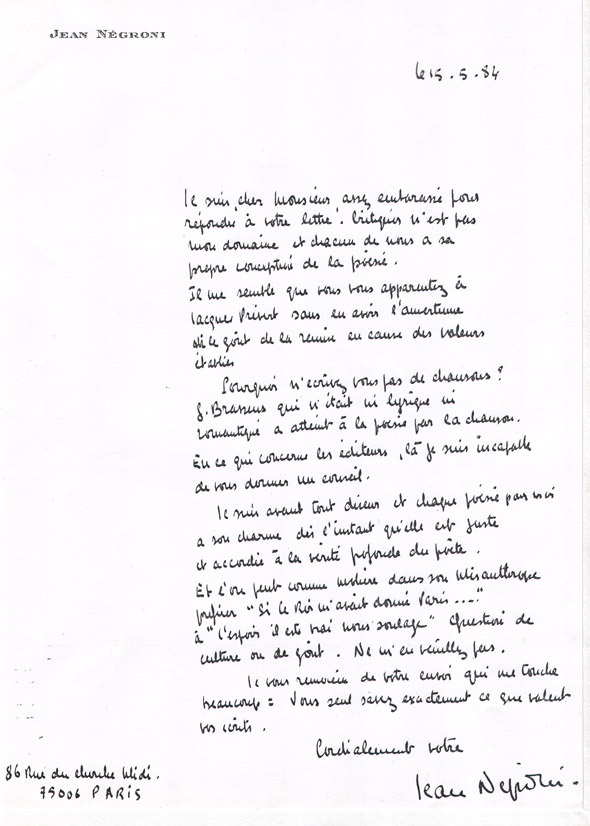 JEAN NÉGRONI
le 15.5.84
Je suis, cher Monsieur, assez embarassé pour
répondre à votre lettre. Critiquer n'est pas
mon domaine et chacun de nous a sa
propre conception de la poésie.
Il me semble que vous vous apparentez à
Jacques Prévert sans en avoir l'amertume
ni le goût de la remise en cause des valeurs
établies
Pourquoi n'écrivez vous pas de chansons ?
G. Brassens qui n'était ni lyrique ni
romantique a atteint à la poésie par la chanson.
En ce qui concerne les éditeurs, là je suis incapable
de vous donner un conseil.
Je suis avant tout diseur et chaque poésie pour moi
a son charme dès l'instant qu'elle est juste
et accordée à la vérité profonde du poète.
Et l'on peut comme Molière dans son Misanthrope
préférer "Si le Roi m'avait donné Paris ...."
à "l'espoir il est vrai nous soulage" Question de
culture ou de goût. Ne m'en veuillez pas.
Je vous remercie de votre envoi qui me touche
beaucoup = Vous seul savez exactement ce que valent
vos écrits.
Cordialement votre
Jean Négroni.
86 Rue du cherche Midi.
75006 PARIS